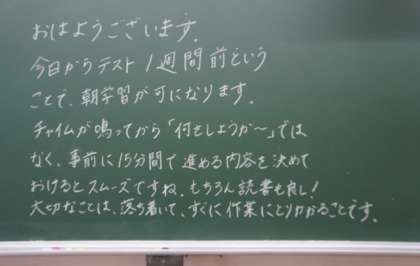 おはようございます。
今日からテスト1週間前という
ことで、朝学習が可になります。
チャイムが鳴ってから「何をしようか〜」では
なく、事前に15分間で進める内容を決めて
おけるとスムーズですね。もちろん読書も良し!
大切なことは、落ち着いて、すぐに作業にとりかかることです。